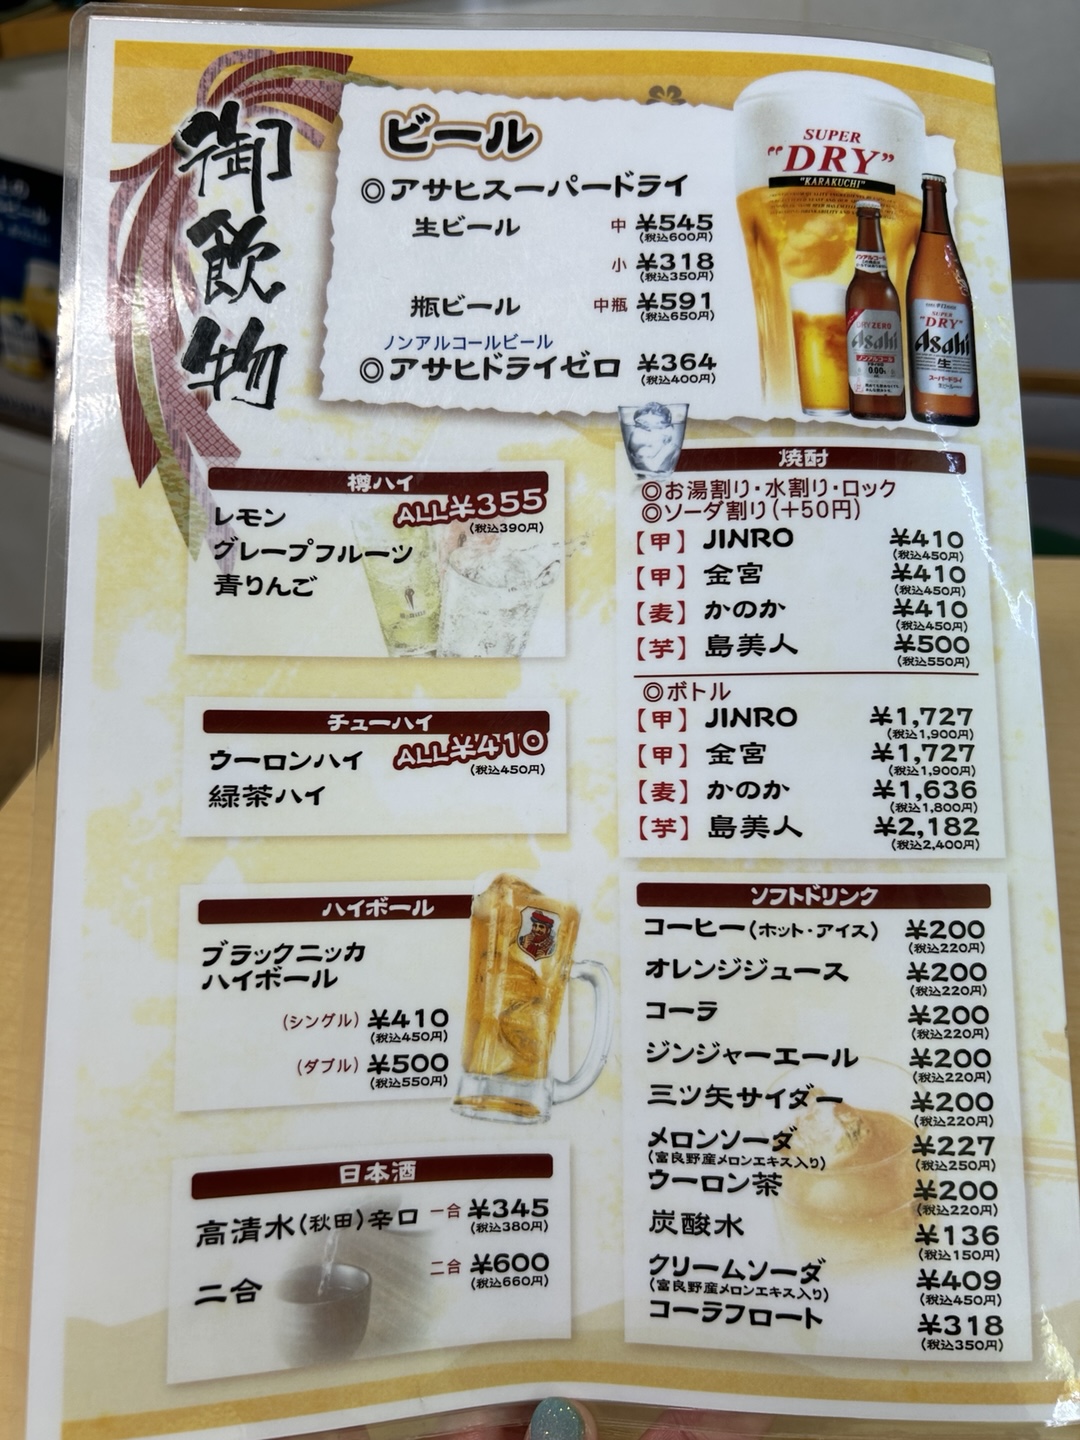 御飲物
ビール
◎アサヒスーパードライ
生ビール 中 ¥545
(税込600円)
小 ¥318
(税込350円)
瓶ビール 中瓶 ¥591
(税込650円)
ノンアルコールビール
◎アサヒドライゼロ ¥364
(税込400円)
SUPER
"DRY"
"KARAKUCHI"
DRY ZERO
Asahi
ノンアルコール
0.00%
SUPER
"DRY"
Asahi
生
スーパードライ
樽ハイ
ALL¥355
(税込390円)
レモン
グレープフルーツ
青りんご
チューハイ
ALL¥410
(税込450円)
ウーロンハイ
緑茶ハイ
ハイボール
ブラックニッカ
ハイボール
(シングル) ¥410
(税込450円)
(ダブル) ¥500
(税込550円)
日本酒
高清水(秋田)辛口 一合 ¥345
(税込380円)
二合 二合 ¥600
(税込660円)
焼酎
◎お湯割り・水割り・ロック
◎ソーダ割り(+50円)
【甲】 JINRO ¥410
(税込450円)
【甲】 金宮 ¥410
(税込450円)
【麦】 かのか ¥410
(税込450円)
【芋】 島美人 ¥500
(税込550円)
◎ボトル
【甲】 JINRO ¥1,727
(税込1,900円)
【甲】 金宮 ¥1,727
(税込1,900円)
【麦】 かのか ¥1,636
(税込1,800円)
【芋】 島美人 ¥2,182
(税込2,400円)
ソフトドリンク
コーヒー(ホット・アイス) ¥200
(税込220円)
オレンジジュース ¥200
(税込220円)
コーラ ¥200
(税込220円)
ジンジャーエール ¥200
(税込220円)
三ツ矢サイダー ¥200
(税込220円)
メロンソーダ ¥227
(富良野産メロンエキス入り) (税込250円)
ウーロン茶 ¥200
(税込220円)
炭酸水 ¥136
(税込150円)
クリームソーダ ¥409
(富良野産メロンエキス入り) (税込450円)
コーラフロート ¥318
(税込350円)